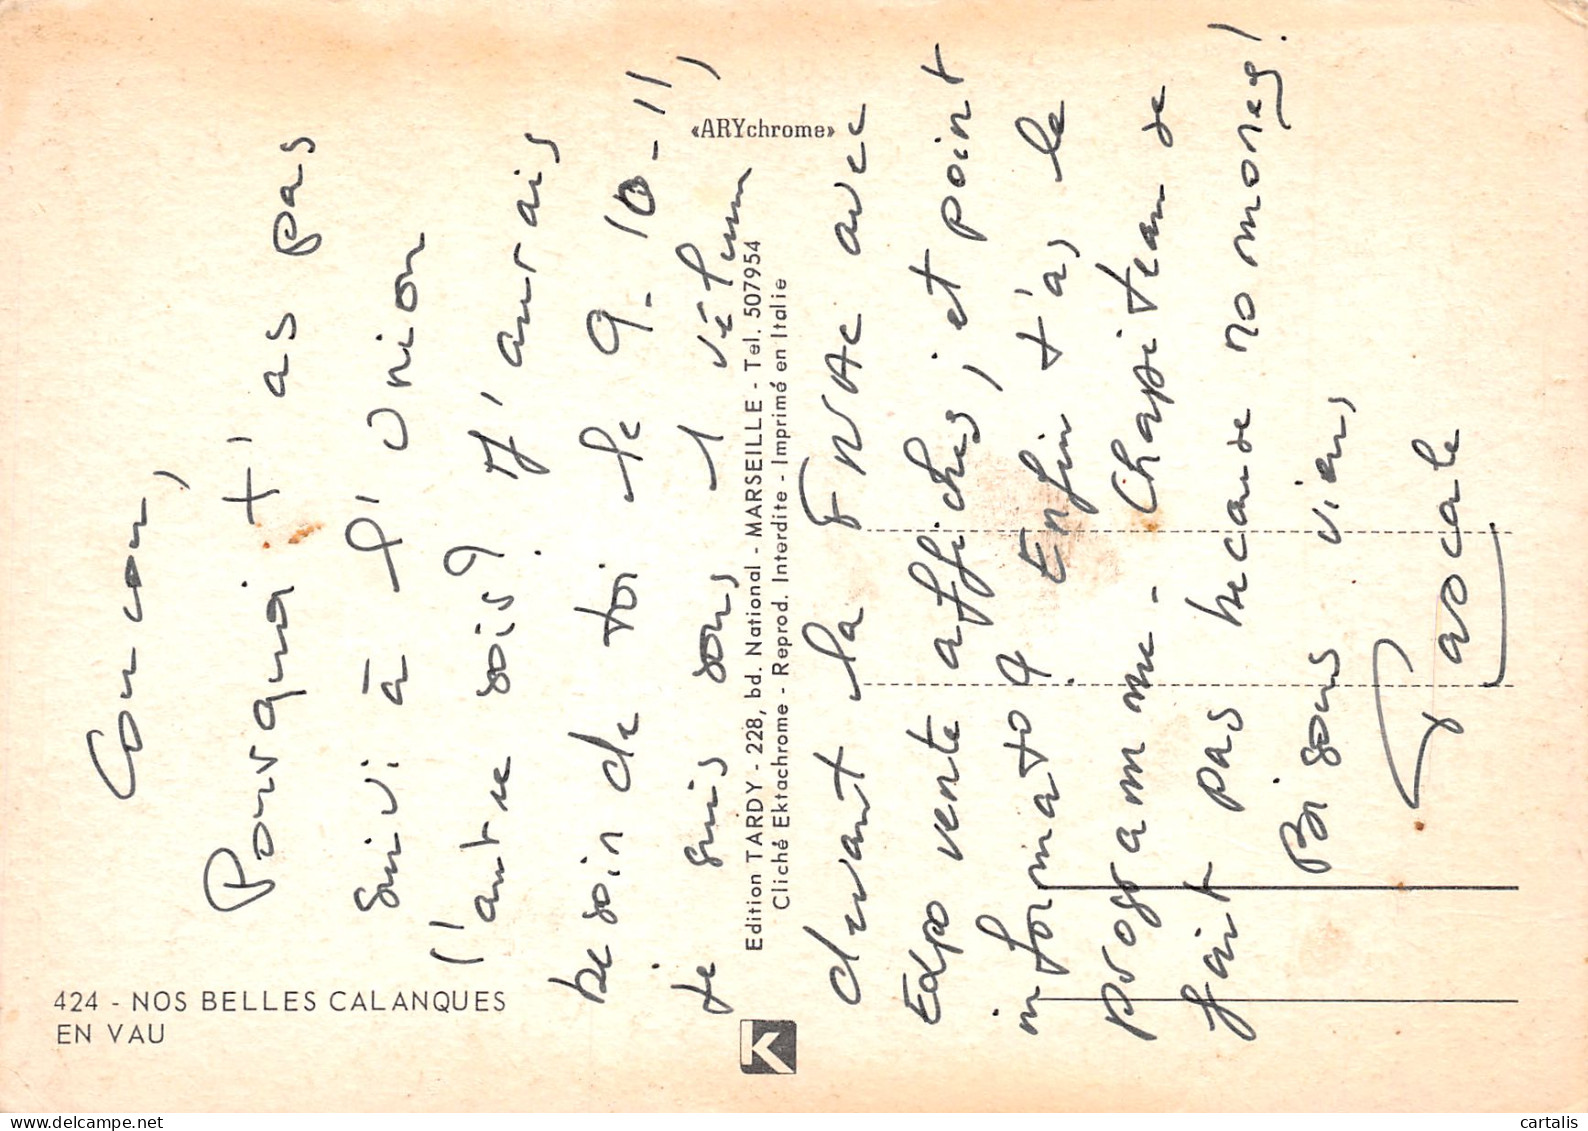 424 - NOS BELLES CALANQUES
EN VAU
«ARYchrome»
Edition TARDY - 228, bd. National - MARSEILLE - Tel. 507954
Cliché Ektachrome - Reprod. Interdite - Imprimé en Italie
K
Coucou,
Pourquoi t'as pas
suivi à l'Union
l'autre soir? J'aurais
besoin de toi le 9-10-11,
je suis sous 1 vélum
devant la FNAC avec
Expo vente affiches, et point
informato q Enfin t'as le
programme - Chapiteau de
fait pas because no money!
Bisous vieux,
Pascale
cartalis.com